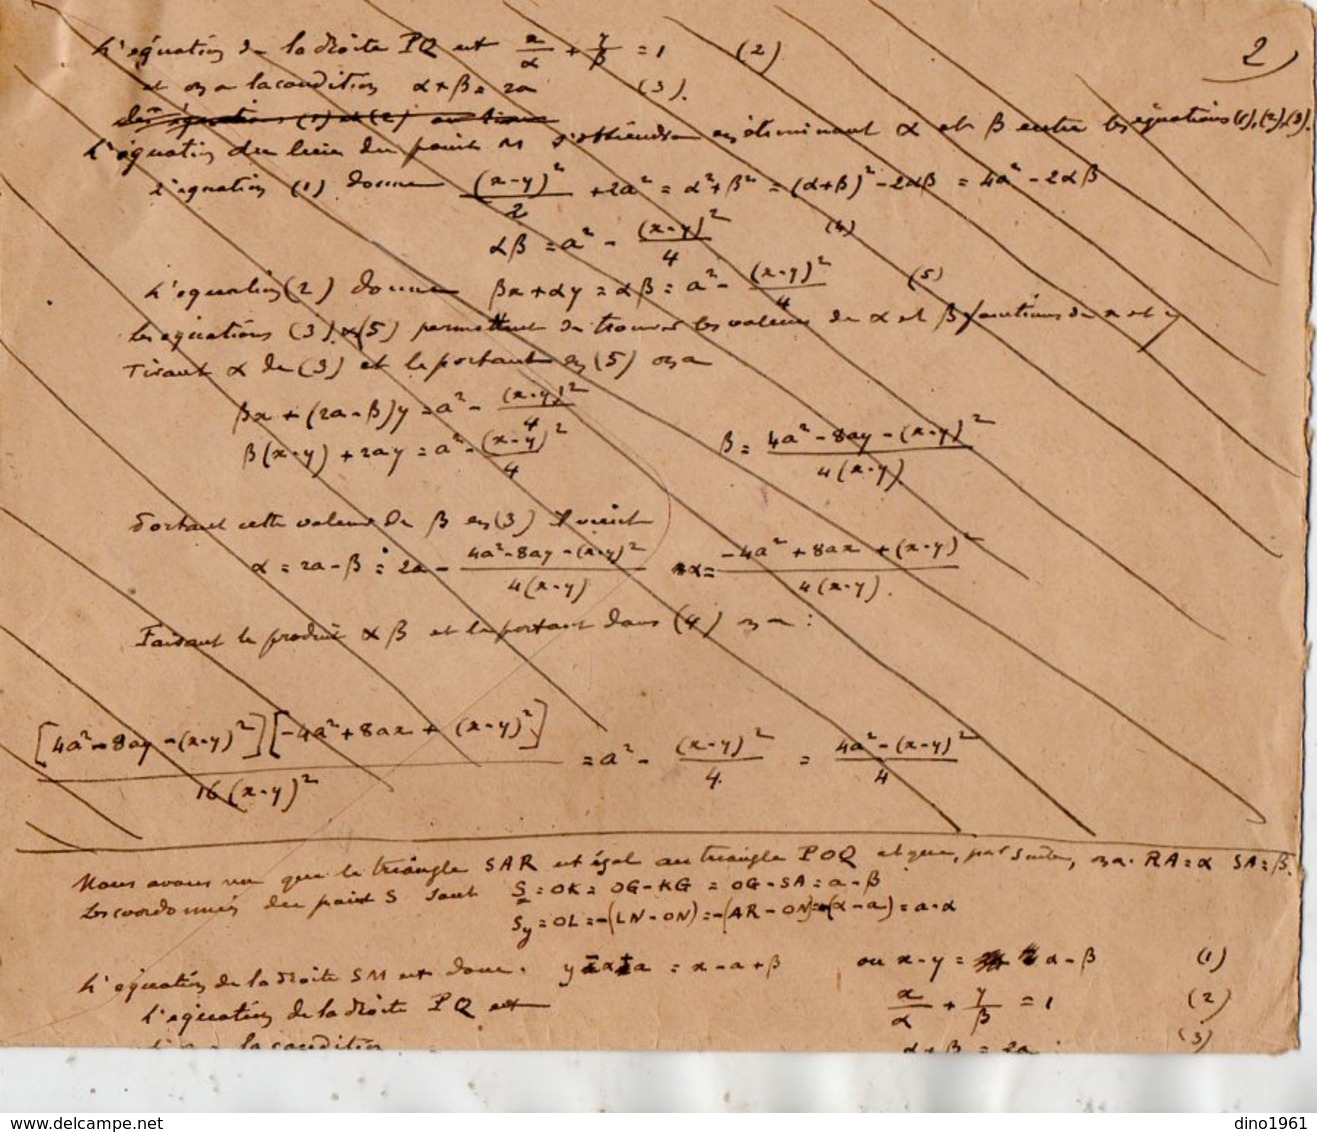 2)
L'équation de la droite PQ est x/α + y/β = 1 (2)
et on a la condition α+β = 2a (3).
Les équations (1) et (2)
L'équation du lieu du point M s'obtiendra en éliminant α et β entre les équations (1), (2), (3).
L'équation (1) donne (x-y)²/2 + 2a² = α²+β² = (α+β)² - 2αβ = 4a² - 2αβ
αβ = a² - (x-y)²/4 (4)
L'équation (2) donne βx + αy = αβ = a² - (x-y)²/4 (5)
Les équations (3) & (5) permettent de trouver les valeurs de α et β fonctions de x et y
Tirant α de (3) et le portant en (5) on a
βx + (2a-β)y = a² - (x-y)²/4
β(x-y) + 2ay = a² - (x-y)²/4 β = 4a² - 8ay - (x-y)²/4(x-y)
Portant cette valeur de β en (3) il vient
α = 2a - β = 2a - 4a² - 8ay - (x-y)²/4(x-y) α = -4a² + 8ax + (x-y)²/4(x-y).
Faisant le produit αβ et le portant dans (4) on a :
[4a² - 8ay - (x-y)²][-4a² + 8ax + (x-y)²]/16(x-y)² = a² - (x-y)²/4 = 4a² - (x-y)²/4
Nous avons vu que le triangle SAR est égal au triangle POQ et que, par suite, on a. RA = α SA = β.
Les coordonnées du point S sont Sx = OK = OG - KG = OG - SA = a - β
Sy = OL = -(LN - ON) = -(AR - ON) = -(α - a) = a - α
L'équation de la droite SM est donc. y - a + α = x - a + β ou x - y = α - β (1)
L'équation de la droite PQ est x/α + y/β = 1 (2)
la condition α + β = 2a (3)
dino1961